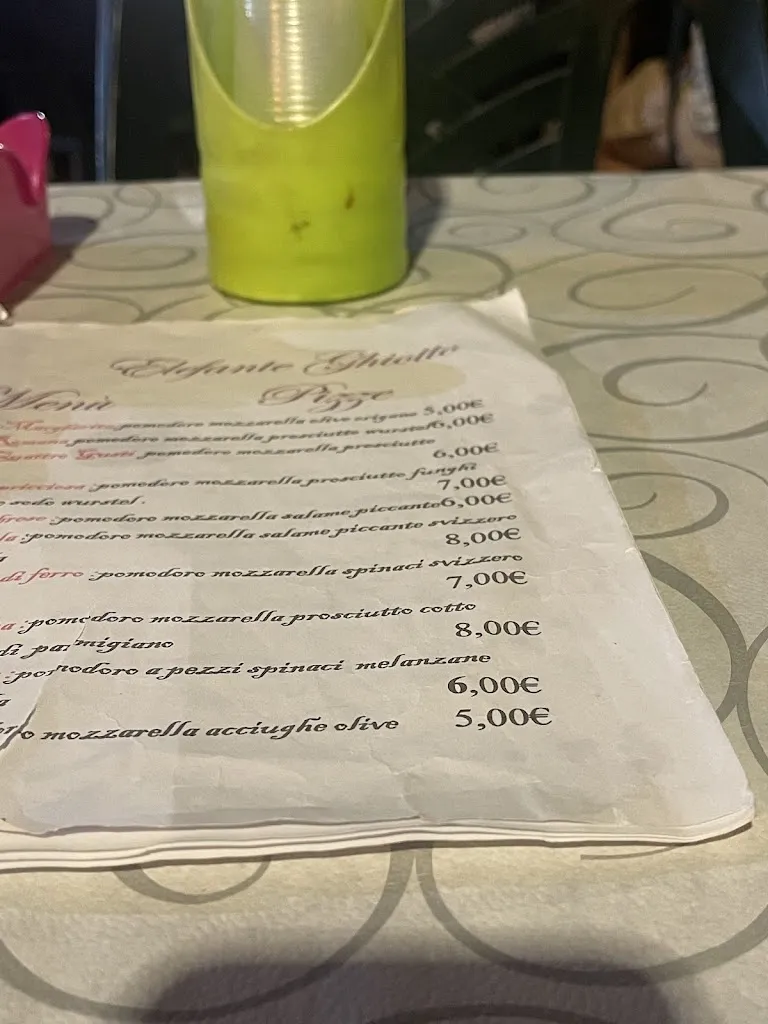 Elefante Ghiotto
Menù Pizze
Margherita: pomodoro mozzarella olive origano 5,00€
Romana pomodoro mozzarella prosciutto wurstel 6,00€
Quattro Gusti pomodoro mozzarella prosciutto
6,00€
pricciosa :pomodoro mozzarella prosciutto funghi
7,00€
e sode wurstel.
brese :pomodoro mozzarella salame piccante 6,00€
la :pomodoro mozzarella salame piccante svizzero
8,00€
di ferro :pomodoro mozzarella spinaci svizzero
7,00€
a :pomodoro mozzarella prosciutto cotto
8,00€
di parmigiano
:pomodoro a pezzi spinaci melanzane
6,00€
la
o mozzarella acciughe olive 5,00€